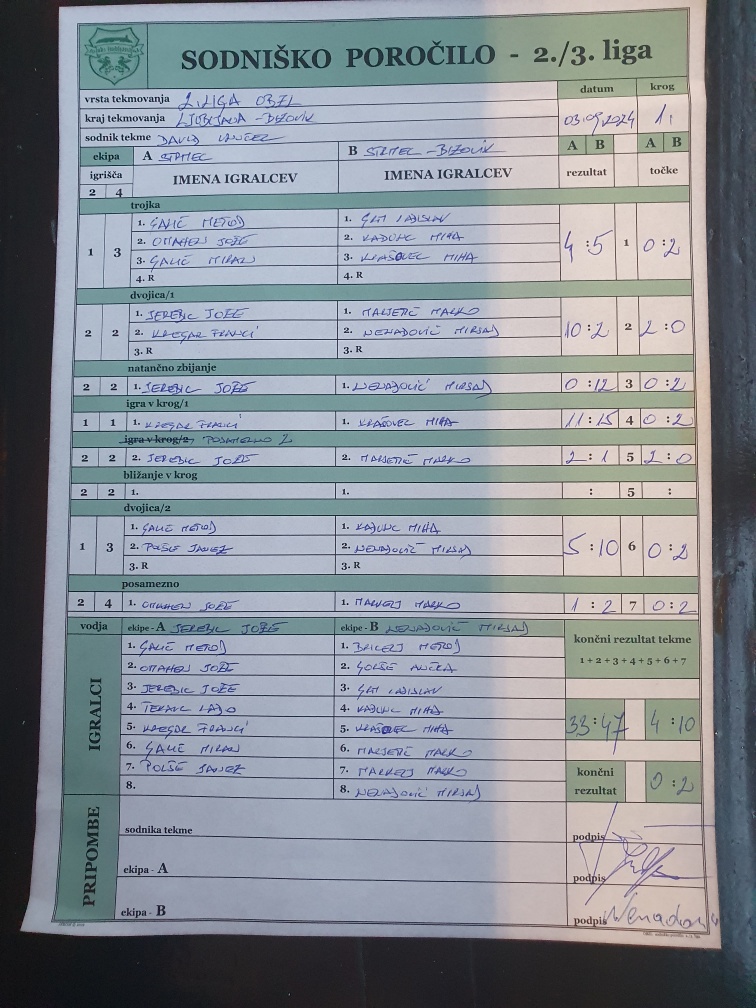 SODNIŠKO POROČILO - 2./3. liga
vrsta tekmovanja 2. LIGA OBZL datum krog
kraj tekmovanja LJUBLJANA - BIZOVIK 03.09.2024 1.
sodnik tekme DAVID
ekipa A STRMEC B STRMEC - BIZOVIK A B A B
igrišča IMENA IGRALCEV IMENA IGRALCEV rezultat točke
2 4
trojka
1. GALIČ METOD 1. GRM LADISLAV
1 3 2. OMAHEN JOŽE 2. KADUNC MIHA 4 : 5 1 0 : 2
3. GALIČ MIRAN 3. KRAŠOVEC MIHA
4. R 4. R
dvojica/1
1. JEREBIC JOŽE 1. MARJETIČ MARKO
2 2 2. KREGAR FRANCI 2. NENADOVIĆ MIRSAD 10 : 2 2 2 : 0
3. R 3. R
natančno zbijanje
2 2 1. JEREBIC JOŽE 1. NENADOVIĆ MIRSAD 0 : 12 3 0 : 2
igra v krog/1
1 1 1. KREGAR FRANCI 1. KRAŠOVEC MIHA 11 : 15 4 0 : 2
igra v krog/2 POSAMEZNO 2
2 2 2. JEREBIC JOŽE 2. MARJETIČ MARKO 2 : 1 5 2 : 0
bližanje v krog
2 2 1. 1. : 5 :
dvojica/2
1. GALIČ METOD 1. KADUNC MIHA
1 3 2. POLŠE JANEZ 2. NENADOVIĆ MIRSAD 5 : 10 6 0 : 2
3. R 3. R
posamezno
2 4 1. OMAHEN JOŽE 1. MARKELJ MARKO 1 : 2 7 0 : 2
vodja ekipe - A JEREBIC JOŽE ekipe - B NENADOVIĆ MIRSAD končni rezultat tekme
IGRALCI 1. GALIČ METOD 1. BRICELJ METOD 1 + 2 + 3 + 4 + 5 + 6 + 7
2. OMAHEN JOŽE 2. GOLŠE
3. JEREBIC JOŽE 3. GRM LADISLAV
4. TEKAVC LADO 4. KADUNC MIHA 33 : 47 4 : 10
5. KREGAR FRANCI 5. KRAŠOVEC MIHA
6. GALIČ MIRAN 6. MARJETIČ MARKO
7. POLŠE JANEZ 7. MARKELJ MARKO končni rezultat 0 : 2
8. 8. NENADOVIĆ MIRSAD
PRIPOMBE sodnika tekme podpis
ekipa - A podpis
ekipa - B podpis